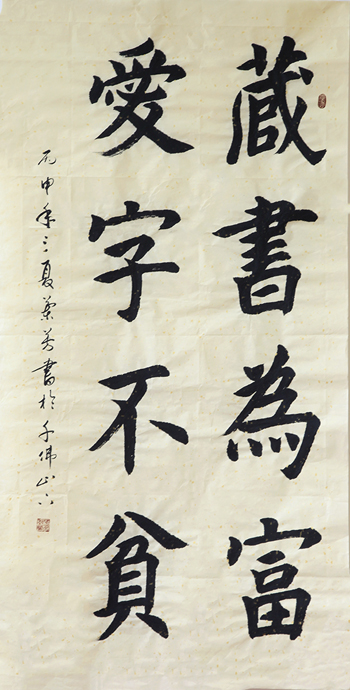 藏書為富
愛字不貧
丙申年之夏兰芳書於千佛山下